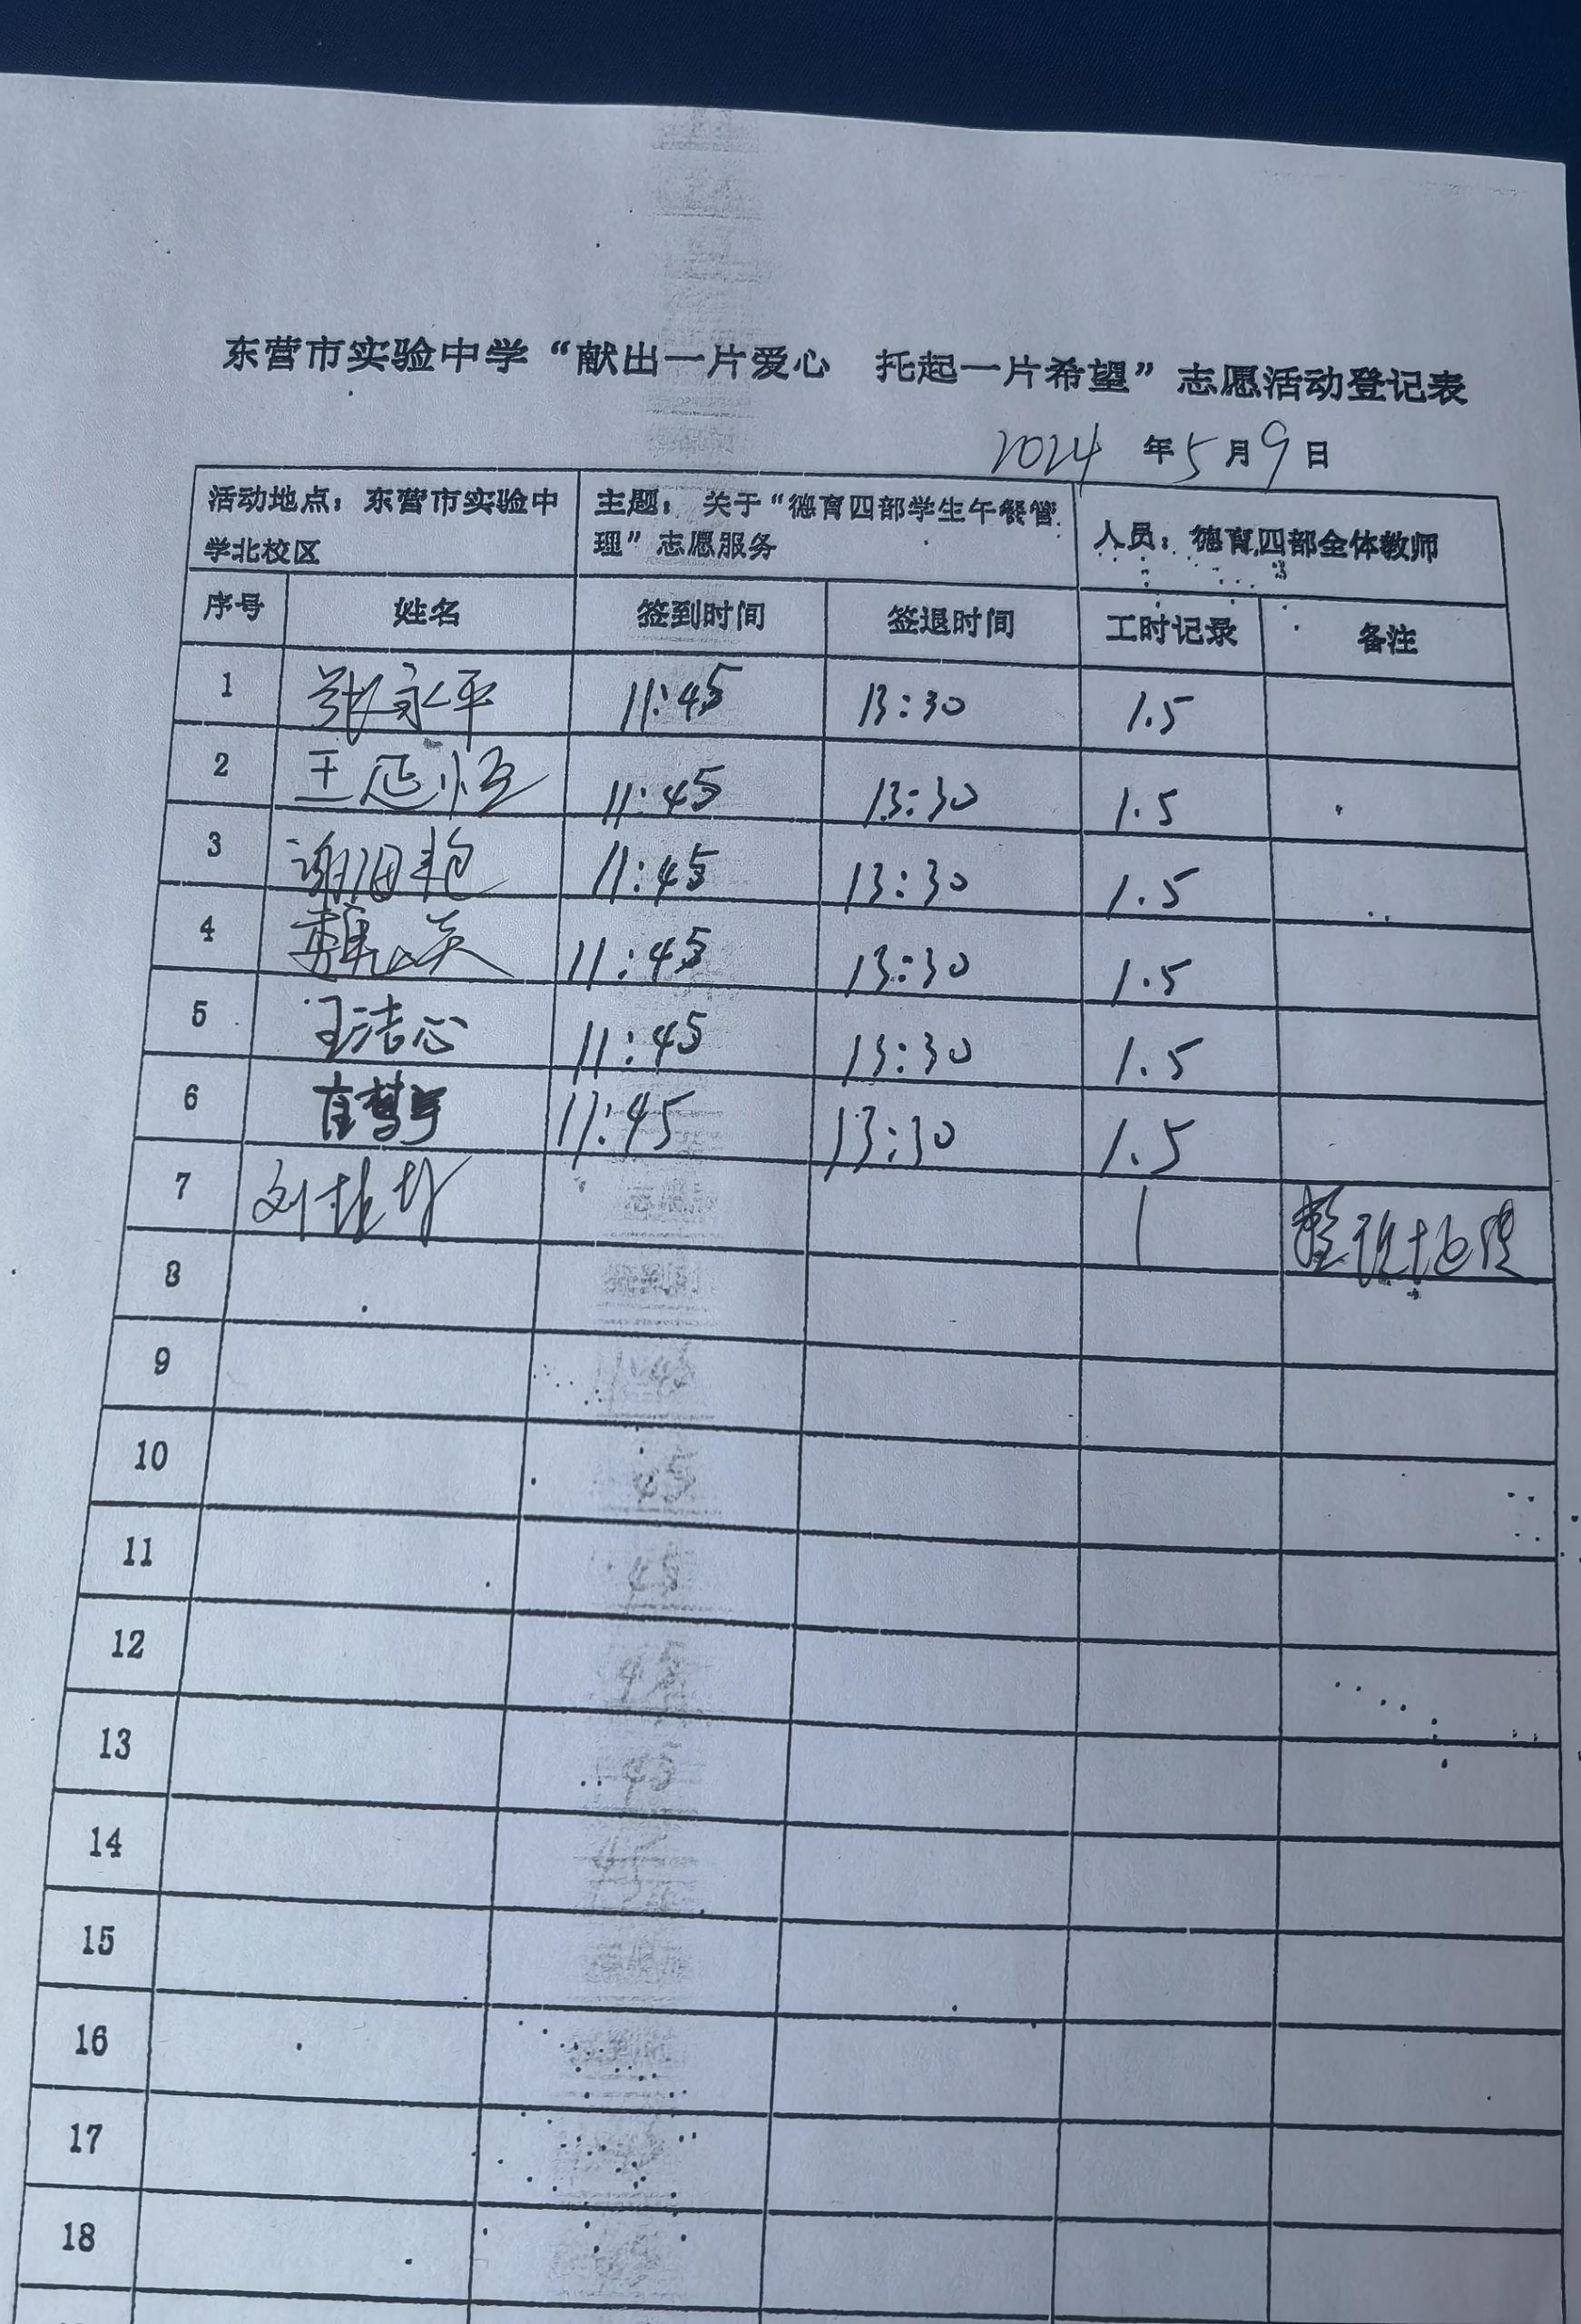 东营市实验中学“献出一片爱心 托起一片希望”志愿活动登记表
2024 年 5 月 9 日
活动地点：东营市实验中学北校区 主题：关于“德育四部学生午餐管理”志愿服务 人员：德育四部全体教师
序号 姓名 签到时间 签退时间 工时记录 备注
1 张永平 11:45 13:30 1.5
2 王延恒 11:45 13:30 1.5
3 谢 11:45 13:30 1.5
4 11:45 13:30 1.5
5 王洁心 11:45 13:30 1.5
6 11:45 13:30 1.5
7 刘 1
8
9
10
11
12
13
14
15
16
17
18